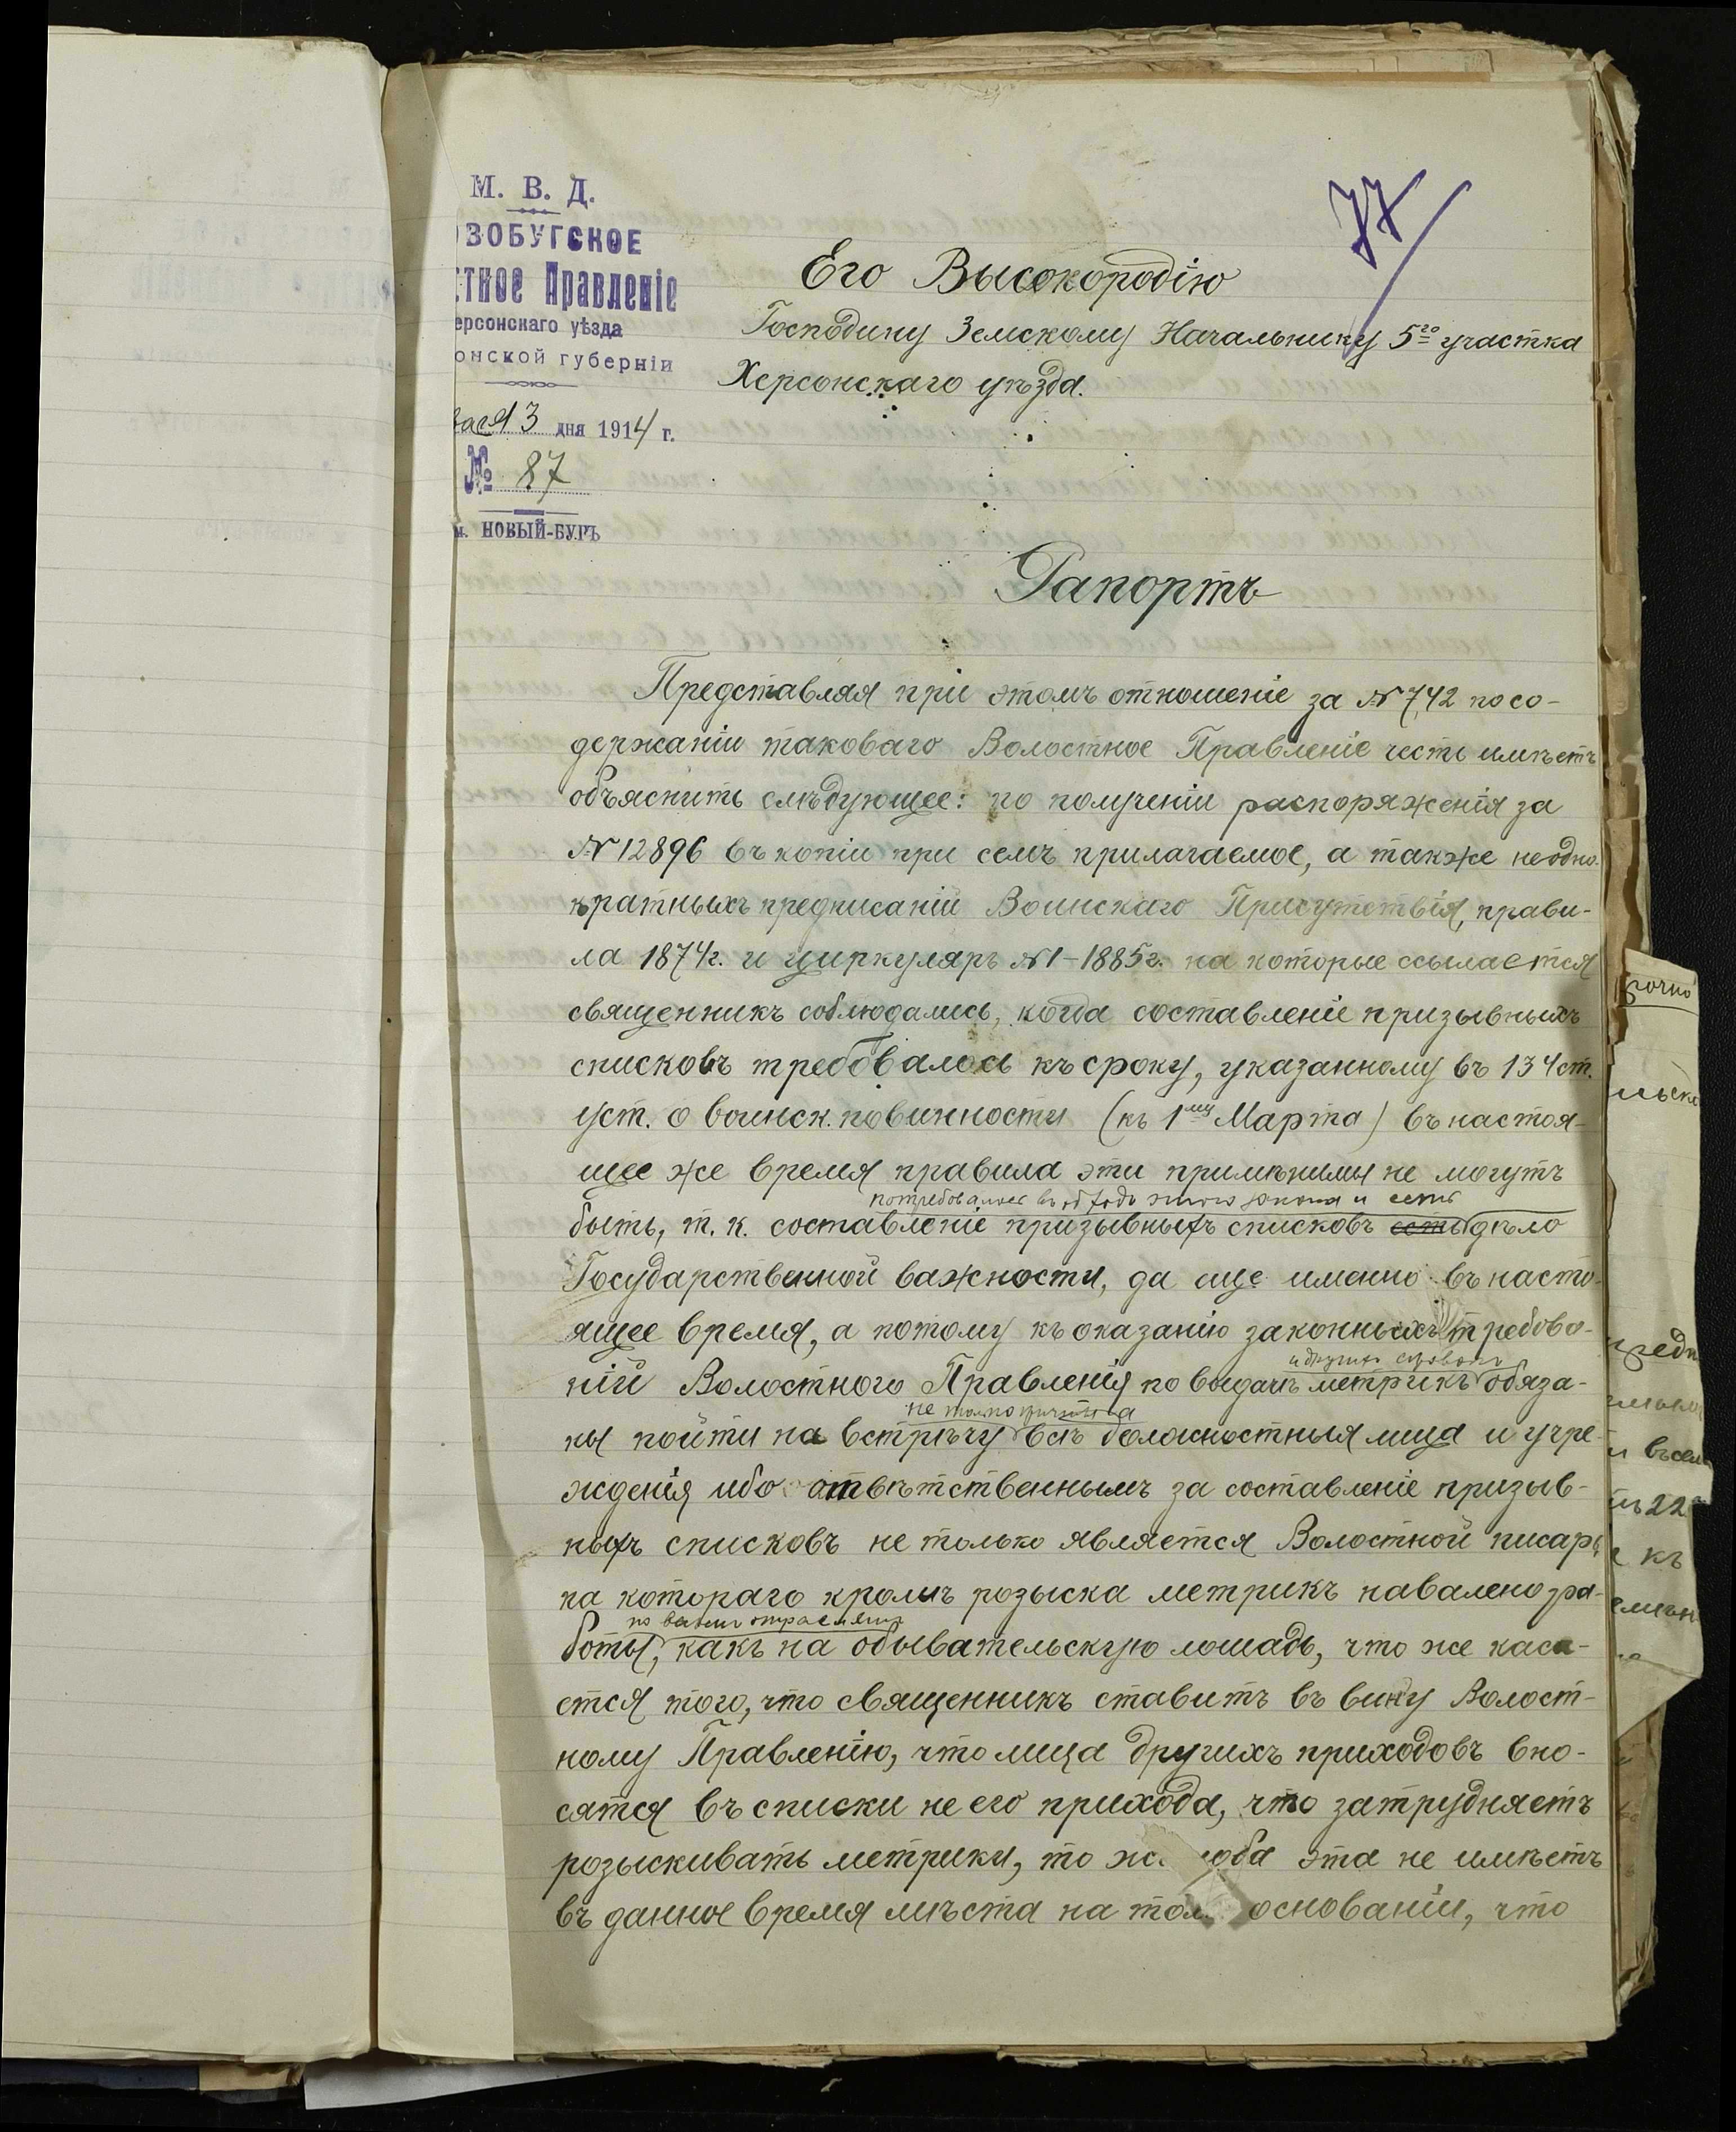 77
М. В. Д.
ВОБУГСКОЕ
тное Правленіе
ерсонскаго уѣзда
онской губерніи
13 дня 1914 г.
№ 87
м. НОВЫЙ-БУГЪ
Его Высокородію
Господину Земскому Начальнику 5го участка
Херсонскаго уѣзда.
Рапортъ
Представляя при этомъ отношеніе за № 742 по со-
держаніи таковаго Волостное Правленіе честь имѣетъ
объяснить слѣдующее: по полученіи распоряженія за
№ 12896 въ копіи при семъ прилагаемое, а также неодно-
кратныхъ предписаній Воинскаго Присутствія, прави-
ла 1874г. и циркуляръ №1-1885г. на которые ссылается
священникъ соблюдались, когда составленіе призывныхъ
списковъ требовалось къ сроку, указанному въ 134 ст.
уст. о воинск. повинности (къ 1му Марта) въ настоя-
щее же время правила эти примѣнимы не могутъ
потребовалось въ этого закона и есть
быть, т. к. составленіе призывныхъ списковъ есть дѣло
Государственной важности, да еще именно въ насто-
ящее время, а потому къ оказанію законныхъ требова-
ній Волостного Правленія по выдачѣ метрикъ обяза-
не только
ны пойти на встрѣчу всѣ должностныя лица и учре-
жденія ибо отвѣтственнымъ за составленіе призыв-
ныхъ списковъ не только является Волостной писарь,
на котораго кромѣ розыска метрикъ навалено ра-
по всѣмъ отраслямъ
боты, какъ на обывательскую лошадь, что же каса-
ется того, что священникъ ставитъ въ вину Волост-
ному Правленію, что лица другихъ приходовъ вно-
сятся въ списки не его прихода, что затрудняетъ
розыскивать метрики, то жалоба эта не имѣетъ
въ данное время мѣста на том основаніи, что